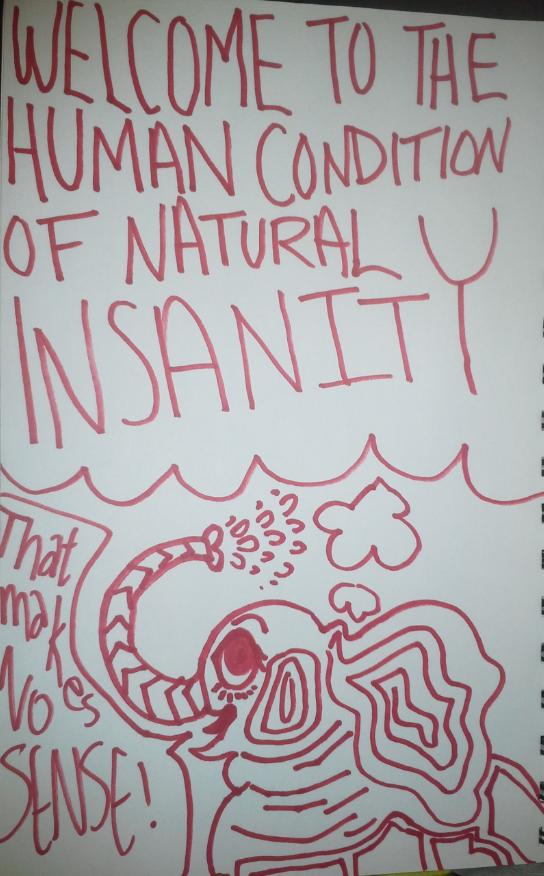 WELCOME TO THE
HUMAN CONDITION
OF NATURAL
INSANITY
That
mak
es
NO
SENSE!